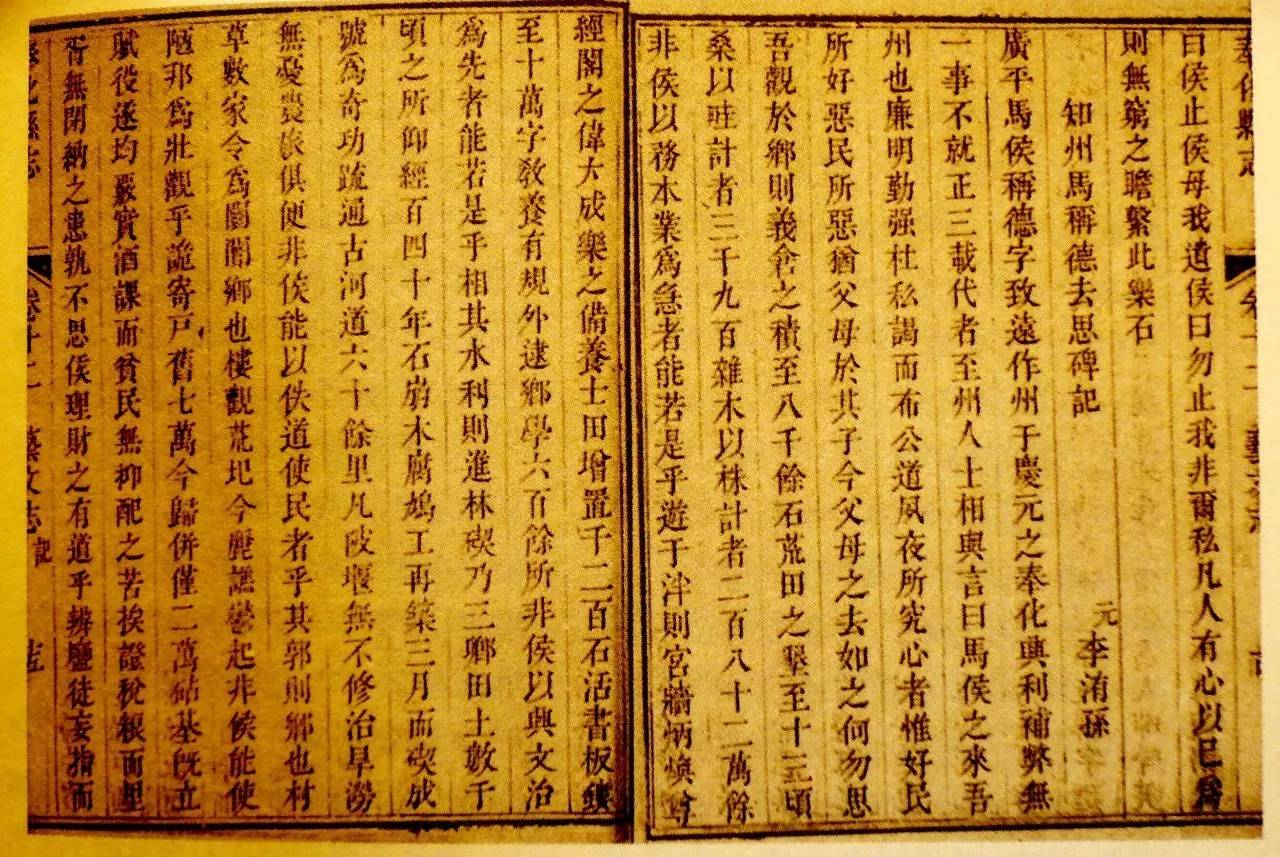 奉化縣志
曰侯止侯母我遺侯曰勿止我非爾私凡人有心以巳爲
則無窮之瞻繫此樂石
知州馬稱德去思碑記
元 李洧孫
廣平馬侯稱德字致遠作州于慶元之奉化興利補弊無
一事不就正三載代者至州人士相與言曰馬侯之來吾
州也廉明勤强杜私謁而布公道夙夜所究心者惟好民
所好惡民所惡猶父母於其子今父母之去如之何勿思
吾觀於鄉則義倉之積至八千餘石荒田之墾至十三頃
桑以畦計者三千九百雜木以株計者二百八十二萬餘
非侯以務本業爲急者能若是乎遊于泮則宮牆炳煥尊
經閣之偉大成樂之備養士田增置千二百石活書板鏤
至十萬字敎養有規外逮鄉學六百餘所非侯以典文治
爲先者能若是乎相其水利則進林碶乃三鄉田土數千
頃之所仰經百四十年石崩木腐鳩工再築三月而碶成
號爲奇功疏通古河道六十餘里凡陂堰無不修治旱澇
無憂農旅俱便非侯能以佚道使民者乎其郭則鄉也村
草數家令爲闤闠鄉也樓觀荒圯今麗譙鬱起非侯能使
陋邦爲壯觀乎詭寄戸舊七萬今歸併僅二萬砧基既立
賦役遂均嚴實酒課而貧民無抑配之苦挨證稅糧而里
胥無閉納之患孰不思侯理財之有道乎辨鹽徒妄指而
奉化縣志 卷十二 藝文志 記